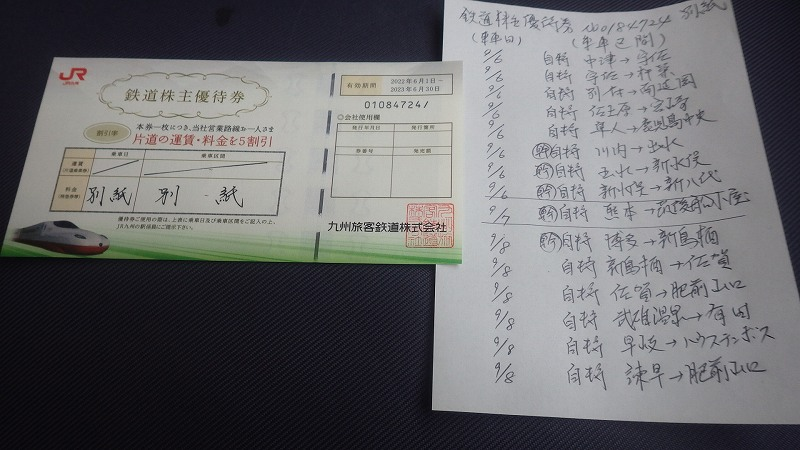 JR
JR九州
鉄道株主優待券
割引率
本券一枚につき、当社営業路線お一人さま
片道の運賃・料金を5割引
乗車日
乗車区間
運賃
料金
別紙
別 紙
優待券ご使用の際は、上表に乗車日及び乗車区間をご記入の上、
JR九州の駅係員にご提示下さい。
有効期間
2022年6月1日～
2023年6月30日
01084724/
◎会社使用欄
発行年月日
発行箇所
券番号
発売額
九州旅客鉄道株式会社
鉄道株主優待券 No01084724 別紙
(乗車日) (乗車区間)
9/6 自特 中津→宇佐
9/6 自特 宇佐→杵築
9/6 自特
9/6 自特 佐土原→宮崎
9/6 自特 隼人→鹿児島中央
9/6 幹自特 川内→出水
9/6 幹自特 出水→新水俣
9/6 幹自特 新水俣→新八代
9/7 幹自特 熊本→筑後船小屋
9/8 幹自特 博多→新鳥栖
9/8 自特 新鳥栖→佐賀
9/8 自特 佐賀→肥前山口
9/8 自特 武雄温泉→有田
9/8 自特 早岐→ハウステンボス
9/8 自特 諫早→肥前山口